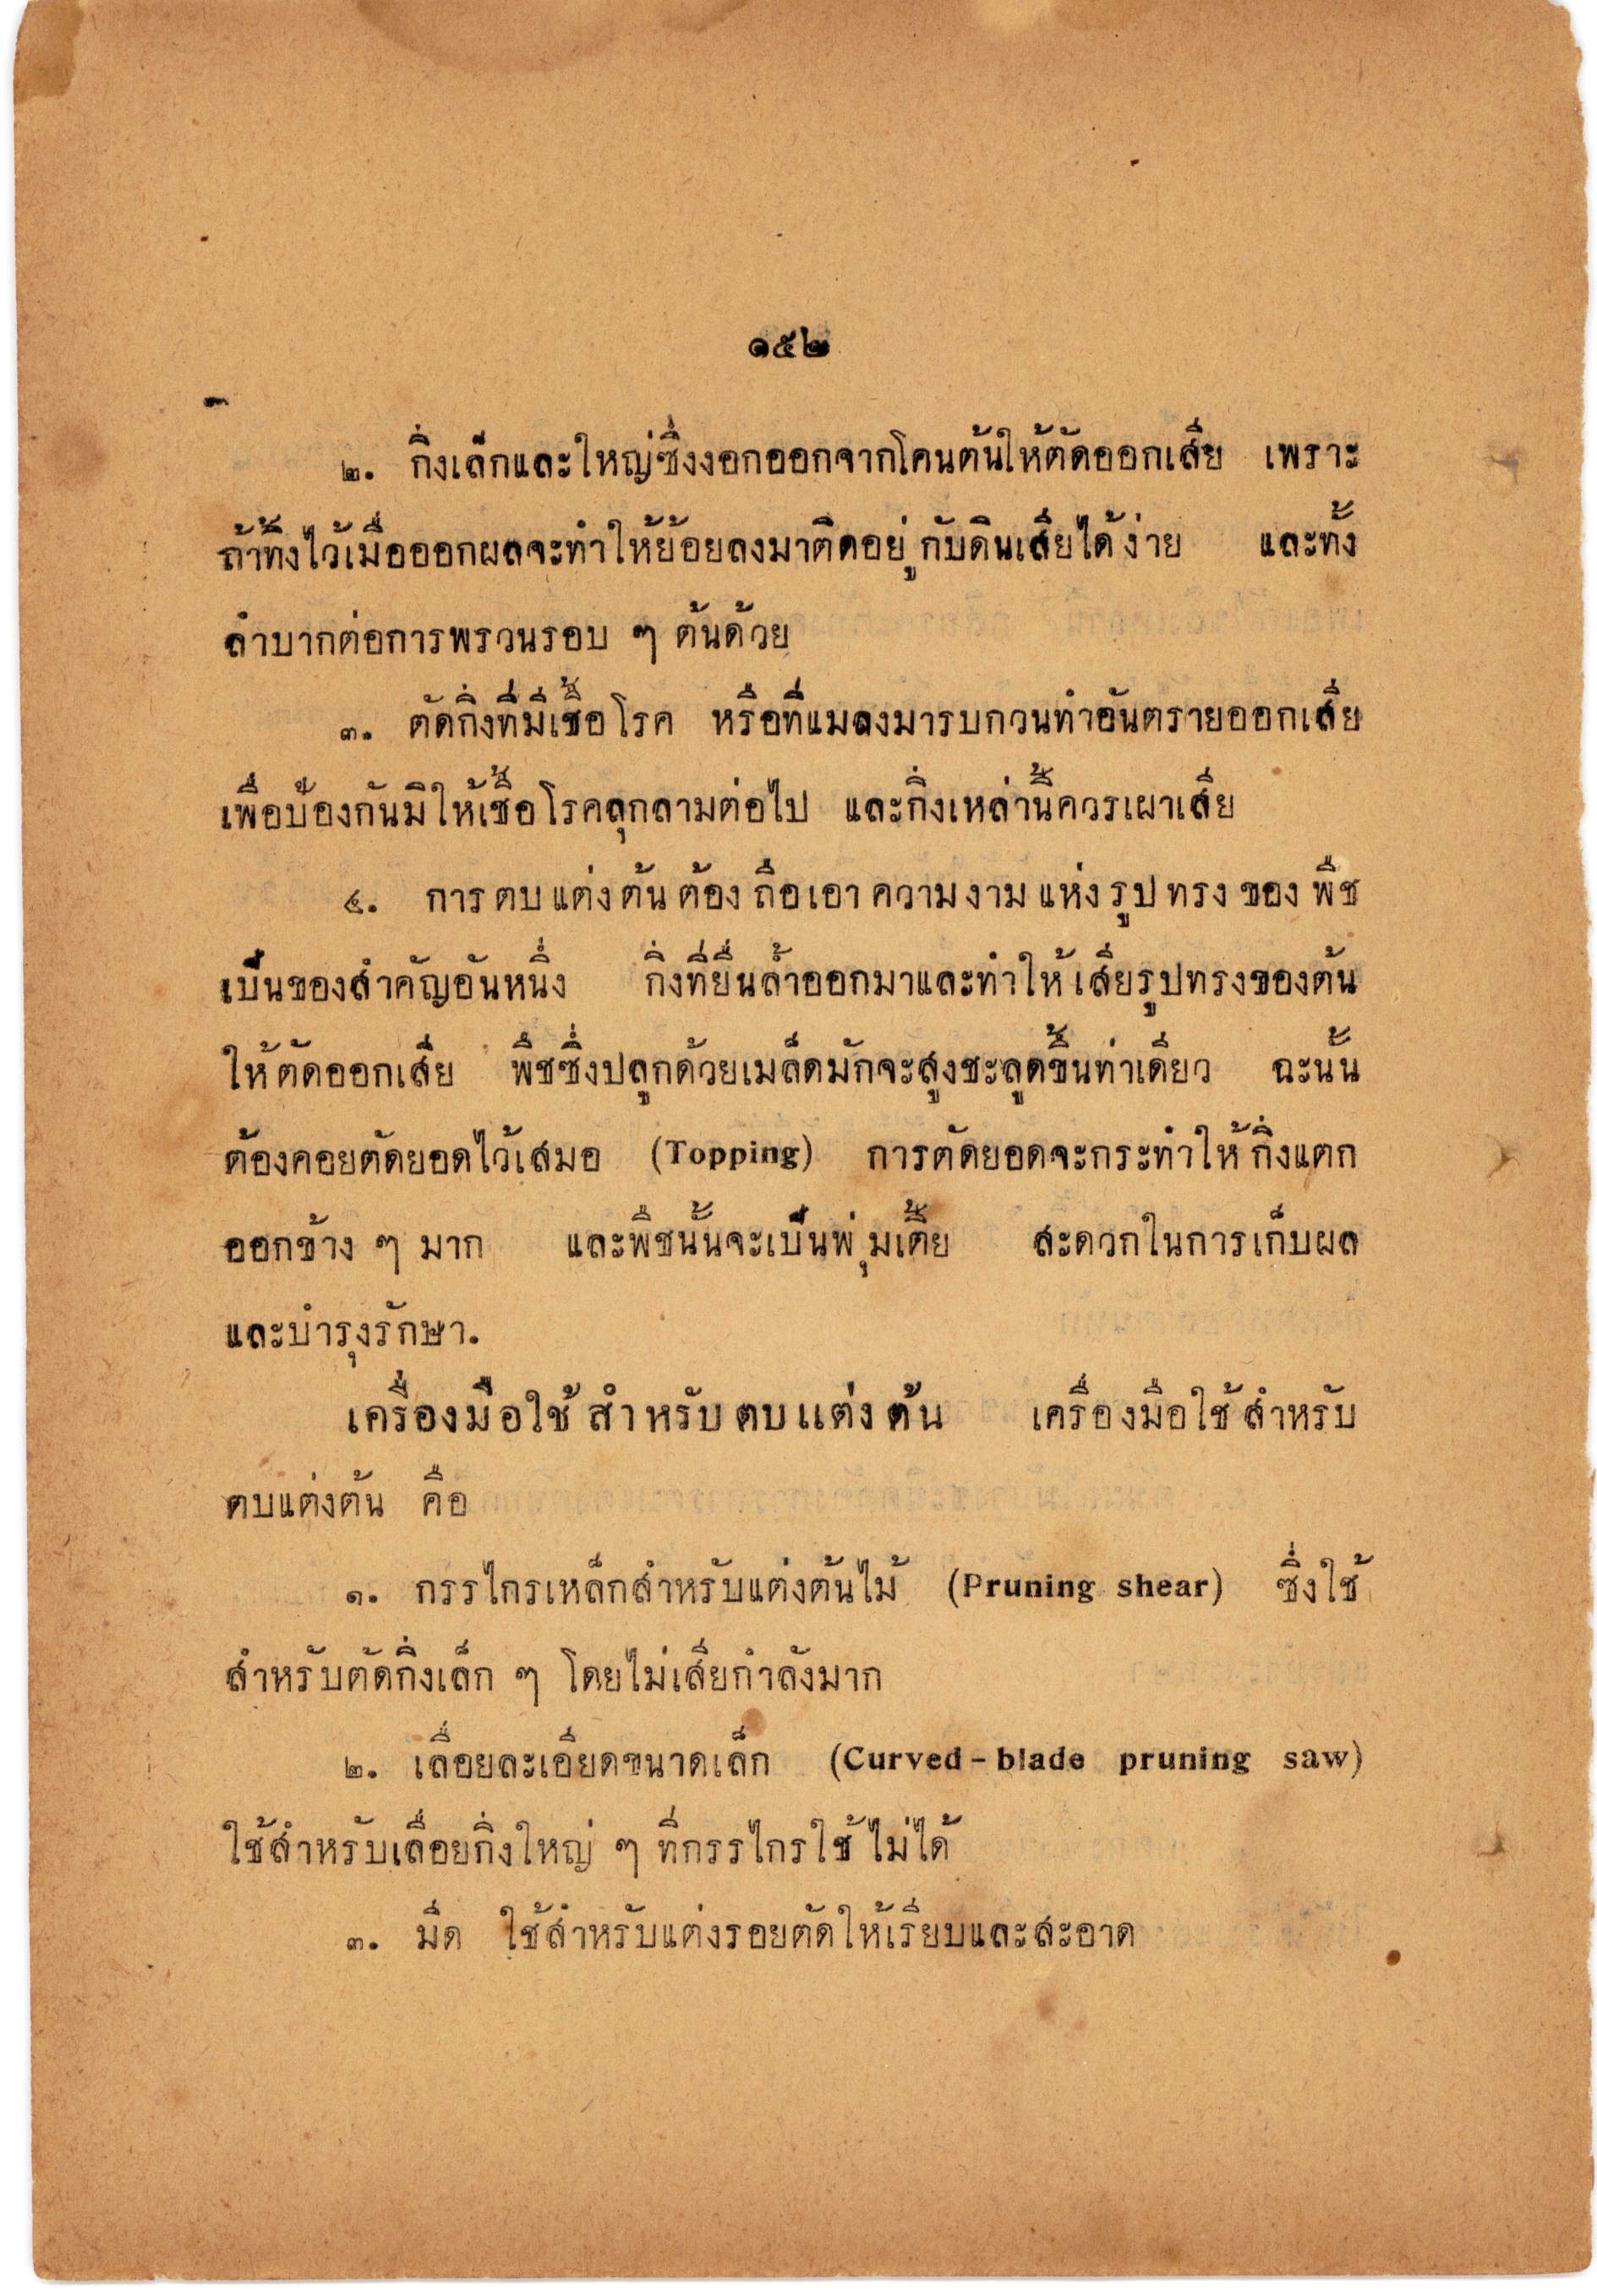 ๑๕๒
๒. กิ่งเล็กและใหญ่ซึ่งงอกออกจากโคนต้นให้ตัดออกเสีย เพราะ
ถ้าทิ้งไว้เมื่อออกผลจะทำให้ย้อยลงมาติดอยู่กับดินเสียได้ง่าย และทั้ง
ลำบากต่อการพรวนรอบ ๆ ต้นด้วย
๓. ตัดกิ่งที่มีเชื้อโรค หรือที่แมลงมารบกวนทำอันตรายออกเสีย
เพื่อป้องกันมิให้เชื้อโรคลุกลามต่อไป และกิ่งเหล่านี้ควรเผาเสีย
๔. การตบแต่งต้นต้องถือเอาความงามแห่งรูปทรงของพืช
เป็นของสำคัญอันหนึ่ง กิ่งที่ยื่นล้ำออกมาและทำให้เสียรูปทรงของต้น
ให้ตัดออกเสีย พืชซึ่งปลูกด้วยเมล็ดมักจะสูงชะลูดขึ้นท่าเดียว ฉะนั้น
ต้องคอยตัดยอดไว้เสมอ (Topping) การตัดยอดจะกระทำให้กิ่งแตก
ออกข้าง ๆ มาก และพืชนั้นจะเป็นพุ่มเตี้ย สะดวกในการเก็บผล
และบำรุงรักษา.
เครื่องมือใช้สำหรับตบแต่งต้น เครื่องมือใช้สำหรับ
ตบแต่งต้น คือ
๑. กรรไกรเหล็กสำหรับแต่งต้นไม้ (Pruning shear) ซึ่งใช้
สำหรับตัดกิ่งเล็ก ๆ โดยไม่เสียกำลังมาก
๒. เลื่อยละเอียดขนาดเล็ก (Curved-blade pruning saw)
ใช้สำหรับเลื่อยกิ่งใหญ่ ๆ ที่กรรไกรใช้ไม่ได้
๓. มีด ใช้สำหรับแต่งรอยตัดให้เรียบและสะอาด